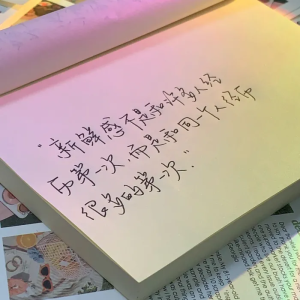 “新鲜感不是和许多人经
历第一次，而是和同一个人经历
很多的第一次”